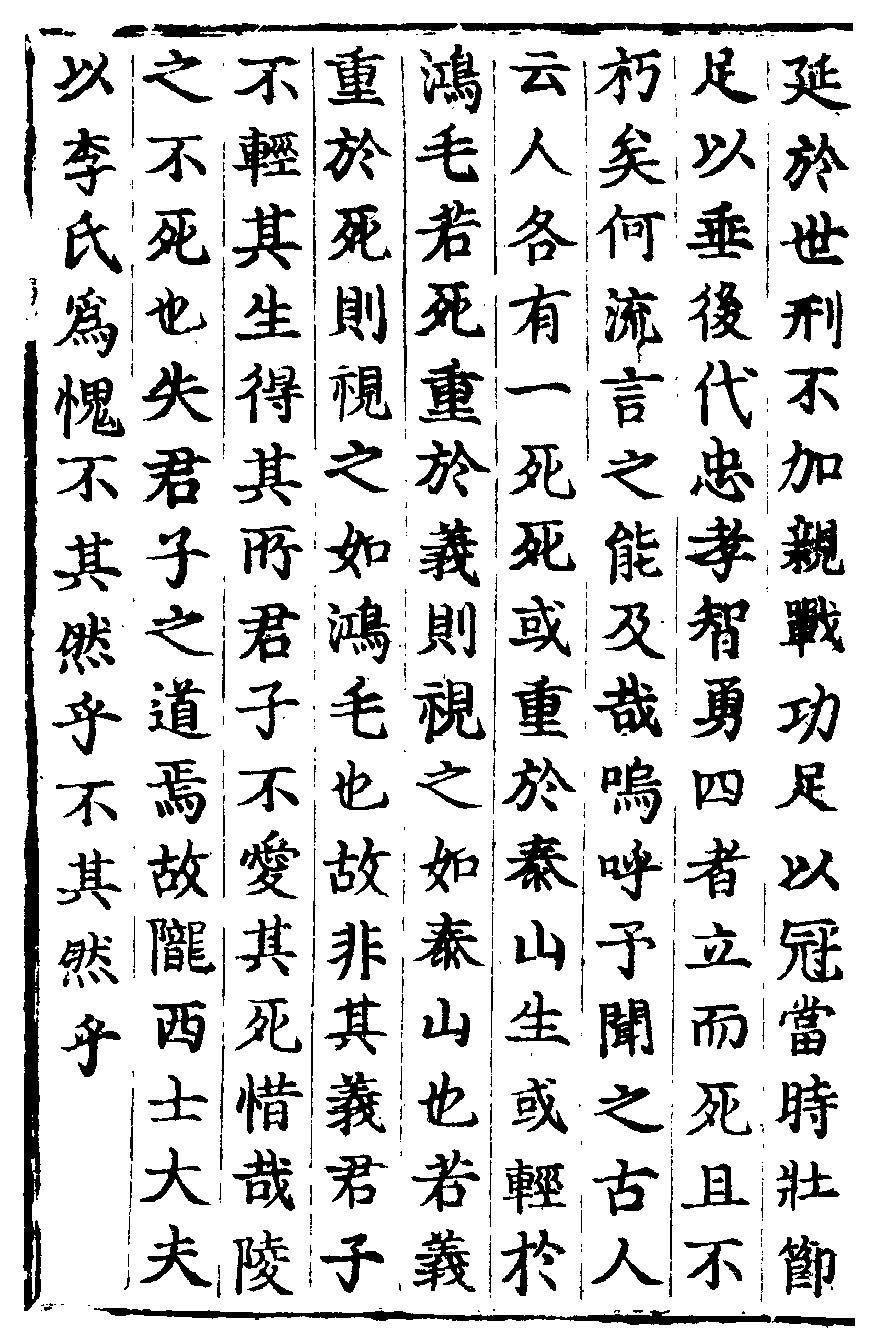 延於世刑不加親戰功足以冠當時壯節
足以垂後代忠孝智勇四者立而死且不
朽矣何流言之能及哉嗚呼予聞之古人
云人各有一死死或重於泰山生或輕於
鴻毛若死重於義則視之如泰山也若義
重於死則視之如鴻毛也故非其義君子
不輕其生得其所君子不愛其死惜哉陵
之不死也失君子之道焉故隴西士大夫
以李氏爲愧不其然乎不其然乎